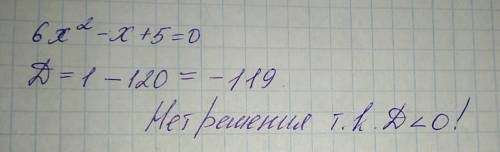 6x² - x + 5 = 0
D = 1 - 120 = -119
Нет решения т.к. D < 0!